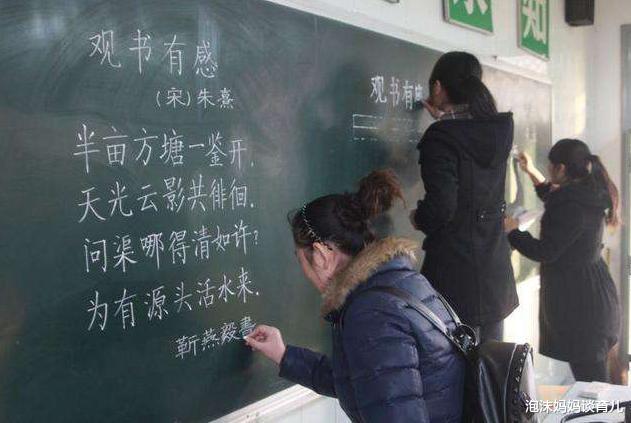 观书有感
(宋)朱熹
半亩方塘一鉴开,
天光云影共徘徊.
问渠哪得清如许?
为有源头活水来.
靳燕毅書
观书有
知
泡沫妈妈谈育儿